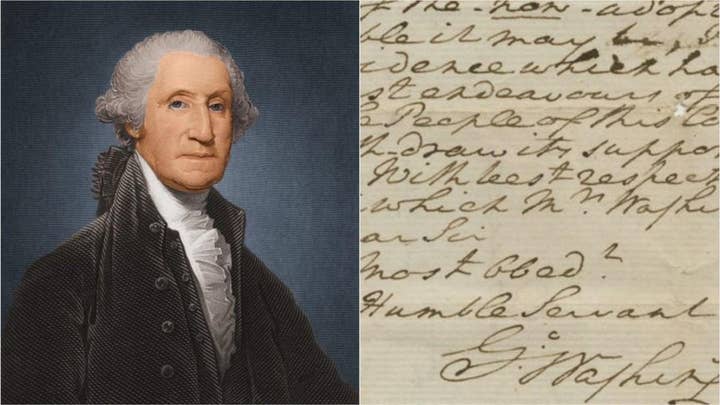 f the non-adopt
ble it may be, I
idence which ha
st endeavours of
e People of this Co
h-draw its suppor
With best respect
which Mrs Washi
ar Sir
Most Obedt
Humble Servant
Go Washing